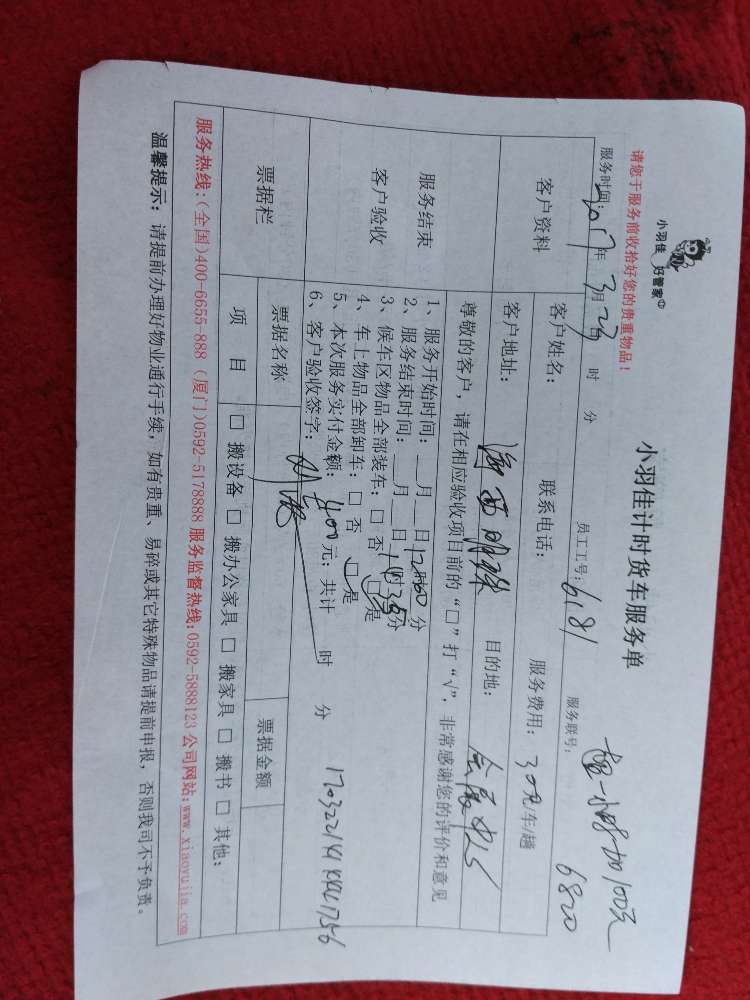 小羽佳 好管家
小羽佳计时货车服务单
请您于服务前收拾好您的贵重物品！
超一小时加100元
服务时间：2017年3月23日 时 分 员工工号：6181 服务联号：6820
客户资料
客户姓名： 联系电话： 服务费用：300元/车/趟
客户地址：海西明珠 目的地：
尊敬的客户，请在相应验收项目前的“□”打“√”，非常感谢您的评价和意见
服务结束
客户验收
1、服务开始时间：__月__日12时00分
2、服务结束时间：__月__日14时35分
3、候车区物品全部装车：□ 否 □ 是
4、车上物品全部卸车：□ 否 □ 是
5、本次服务实付金额：400元；共计 时 分
6、客户验收签字：
票据栏 票据名称 票据金额
项 目 □ 搬设备 □ 搬办公家具 □ 搬家具 □ 搬书 □ 其他：
服务热线：(全国)400-6655-888 (厦门)0592-5178888 服务监督热线：0592-5888123 公司网站：www.xiaoyujia.com
温馨提示：请提前办理好物业通行手续，如有贵重、易碎或其它特殊物品请提前申报，否则我司不予负责。